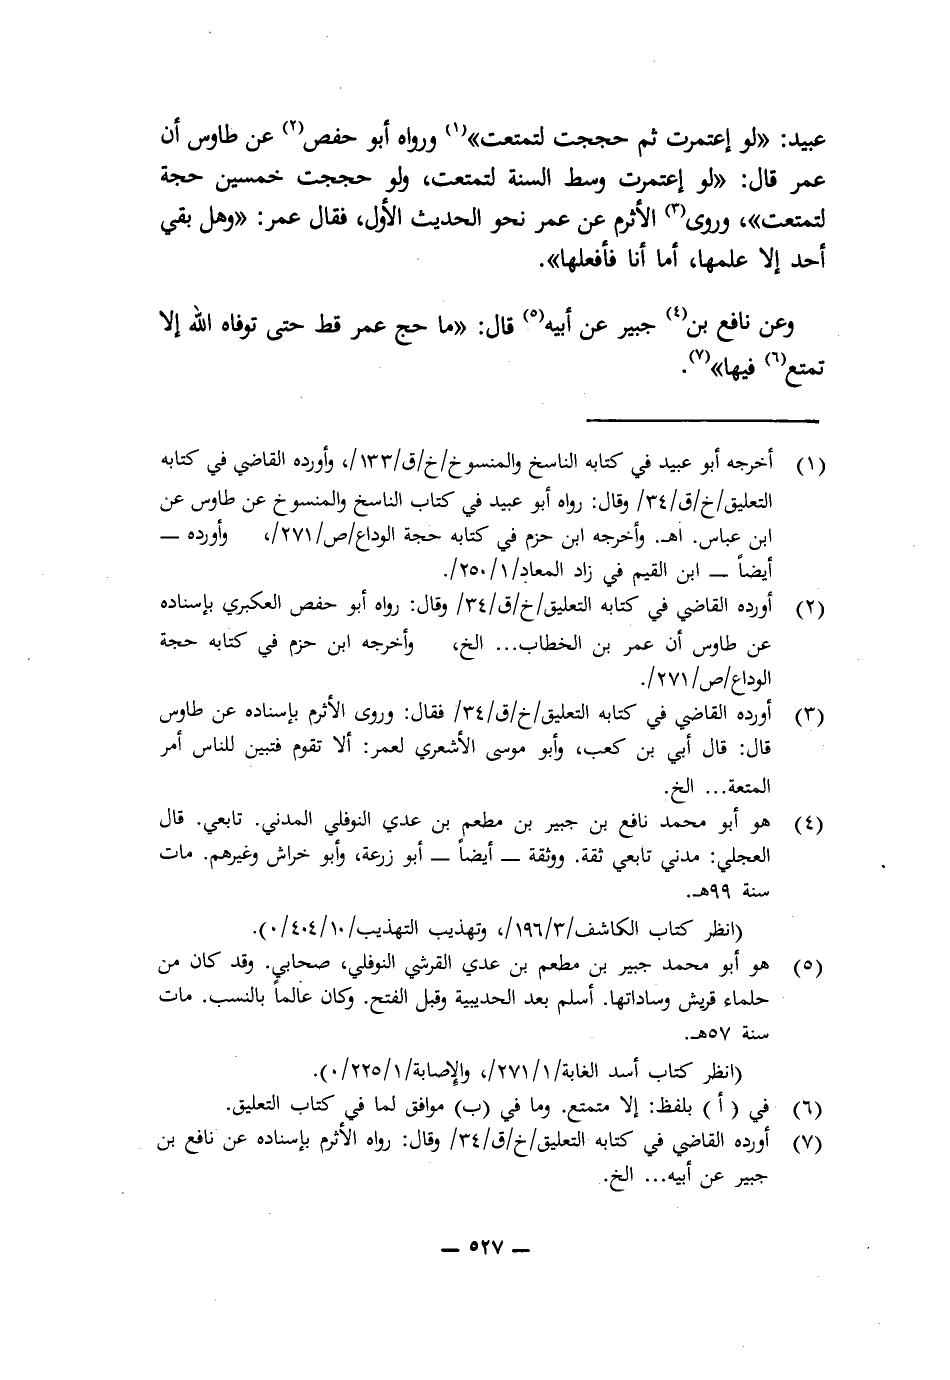 عبيد: «لو إعتمرت ثم حججت لتمتعت»(١) ورواه أبو حفص(٢) عن طاوس أن
عمر قال: «لو إعتمرت وسط السنة لتمتعت، ولو حججت خمسين حجة
لتمتعت»، وروى(٣) الأثرم عن عمر نحو الحديث الأول، فقال عمر: «وهل بقي
أحد إلا علمها، أما أنا فأفعلها».
وعن نافع بن(٤) جبير عن أبيه(٥) قال: «ما حج عمر قط حتى توفاه الله إلا
تمتع(٦) فيها»(٧).
(١) أخرجه أبو عبيد في كتابه الناسخ والمنسوخ/خ/ق/١٣٣/، وأورده القاضي في كتابه
التعليق/خ/ق/٣٤/ وقال: رواه أبو عبيد في كتاب الناسخ والمنسوخ عن طاوس عن
ابن عباس. اهـ. وأخرجه ابن حزم في كتابه حجة الوداع/ص/٢٧١/، وأورده ــ
أيضاً ــ ابن القيم في زاد المعاد/٢٥٠/١/.
(٢) أورده القاضي في كتابه التعليق/خ/ق/٣٤/ وقال: رواه أبو حفص العكبري بإسناده
عن طاوس أن عمر بن الخطاب... الخ، وأخرجه ابن حزم في كتابه حجة
الوداع/ص/٢٧١/.
(٣) أورده القاضي في كتابه التعليق/خ/ق/٣٤/ فقال: وروى الأثرم بإسناده عن طاوس
قال: قال أبي بن كعب، وأبو موسى الأشعري لعمر: ألا تقوم فتبين للناس أمر
المتعة... الخ.
(٤) هو أبو محمد نافع بن جبير بن مطعم بن عدي النوفلي المدني. تابعي. قال
العجلي: مدني تابعي ثقة. ووثقة ــ أيضاً ــ أبو زرعة، وأبو خراش وغيرهم. مات
سنة ٩٩هـ.
(انظر كتاب الكاشف/١٩٦/٣/، وتهذيب التهذيب/٤٠٤/١٠/٠).
(٥) هو أبو محمد جبير بن مطعم بن عدي القرشي النوفلي، صحابي. وقد كان من
حلماء قريش وساداتها. أسلم بعد الحديبية وقبل الفتح. وكان عالماً بالنسب. مات
سنة ٥٧هـ.
(انظر كتاب أسد الغابة/٢٧١/١/، والإصابة/٢٢٥/١/٠).
(٦) في (أ) بلفظ: إلا متمتع. وما في (ب) موافق لما في كتاب التعليق.
(٧) أورده القاضي في كتابه التعليق/خ/ق/٣٤/ وقال: رواه الأثرم بإسناده عن نافع بن
جبير عن أبيه... الخ.
ــ ٥٢٧ ــ